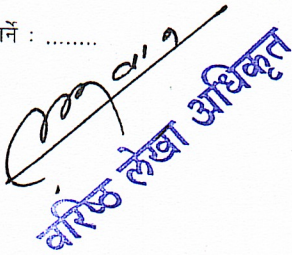 र्ने : ........
वरिष्ठ लेखा अधिकृत